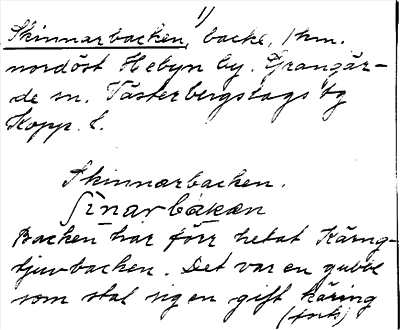 1/
Skinnarbacken, backe, 1 km.
nordöst Hebyn by. Grangär-
de sn. Västerbergslags tg
Kopp. l.
Skinnarbacken.
ʃinarbakæn
Backen har förr hetat Käring-
tjuvbacken. Det var en gubbe
som stal sig en gift käring
(forts)